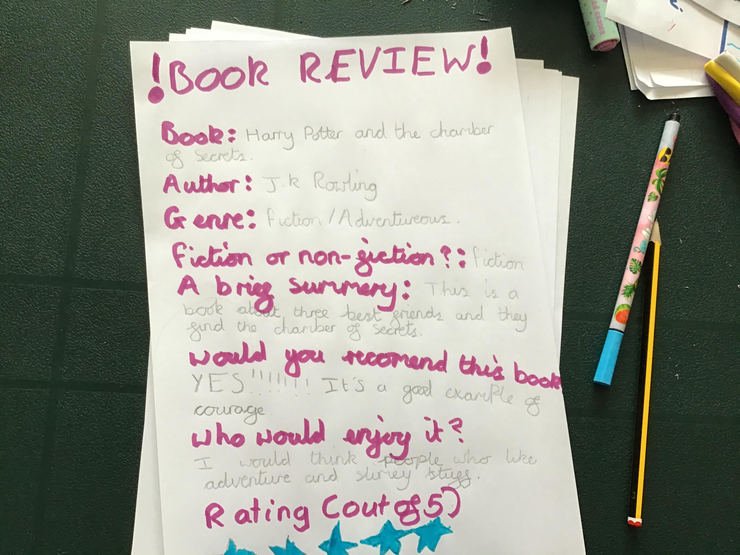 !BOOK REVIEW!
Book: Harry Potter and the chamber
of Secrets.
Author: J.k Rowling
Genre: fiction/Adventureous.
Fiction or non-fiction?: fiction
A brief summery: This is a
book about three best friends and they
find the chamber of secrets.
would you recomend this book
YES!!!!!!! It's a good example of
courage
who would enjoy it?
I would think people who like
adventure and slimey stuff.
Rating (out of 5)